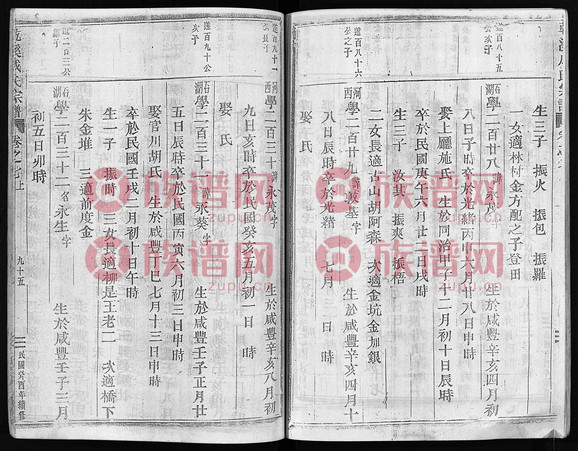 生三子 振火 振包 振羅
一女適林村金方配之子登田
道百八十五公亥子
學二百廿八 諱 字 生於咸豐辛亥四月初
八日子時卒於光緒丙申六月廿八日申時
娶上廳施氏 生於同治甲子十二月初十日辰時
卒於民國庚午六月廿二日戌時
生三子 汝其 振爽 振梧
二女長適古山胡阿森 次適金坑金加銀
道百八十六公之子
河西 學二百廿九 諱敦基 字 生於咸豐辛亥四月十
八日 時卒於光緒 七月 日 時
娶氏
道百九十一公亥子
河西 學二百三十 諱永英 字 生於咸豐辛亥八月初
九日亥時卒於民國癸亥五月初一日 時
娶氏
道百九十公亥子
石 學二百三十一 諱永葵 字 生於咸豐壬子正月廿
五日辰時卒於民國丙寅六月初三日申時
娶官川胡氏 生於咸豐丁巳七月十三日申時
卒於民國壬戌二月初十日午時
生一子 振時 三女長適柳是王老二 次適橋下
朱金堆 三適前度金
道二百三公亥子
石 學二百三十二 名永生 字 生於咸豐壬子三月
初五日卯時
乾溪戚氏宗譜 卷之 上 九十五 民國癸酉年續修
族谱网
www.zupu.cn
族谱网
www.zupu.cn